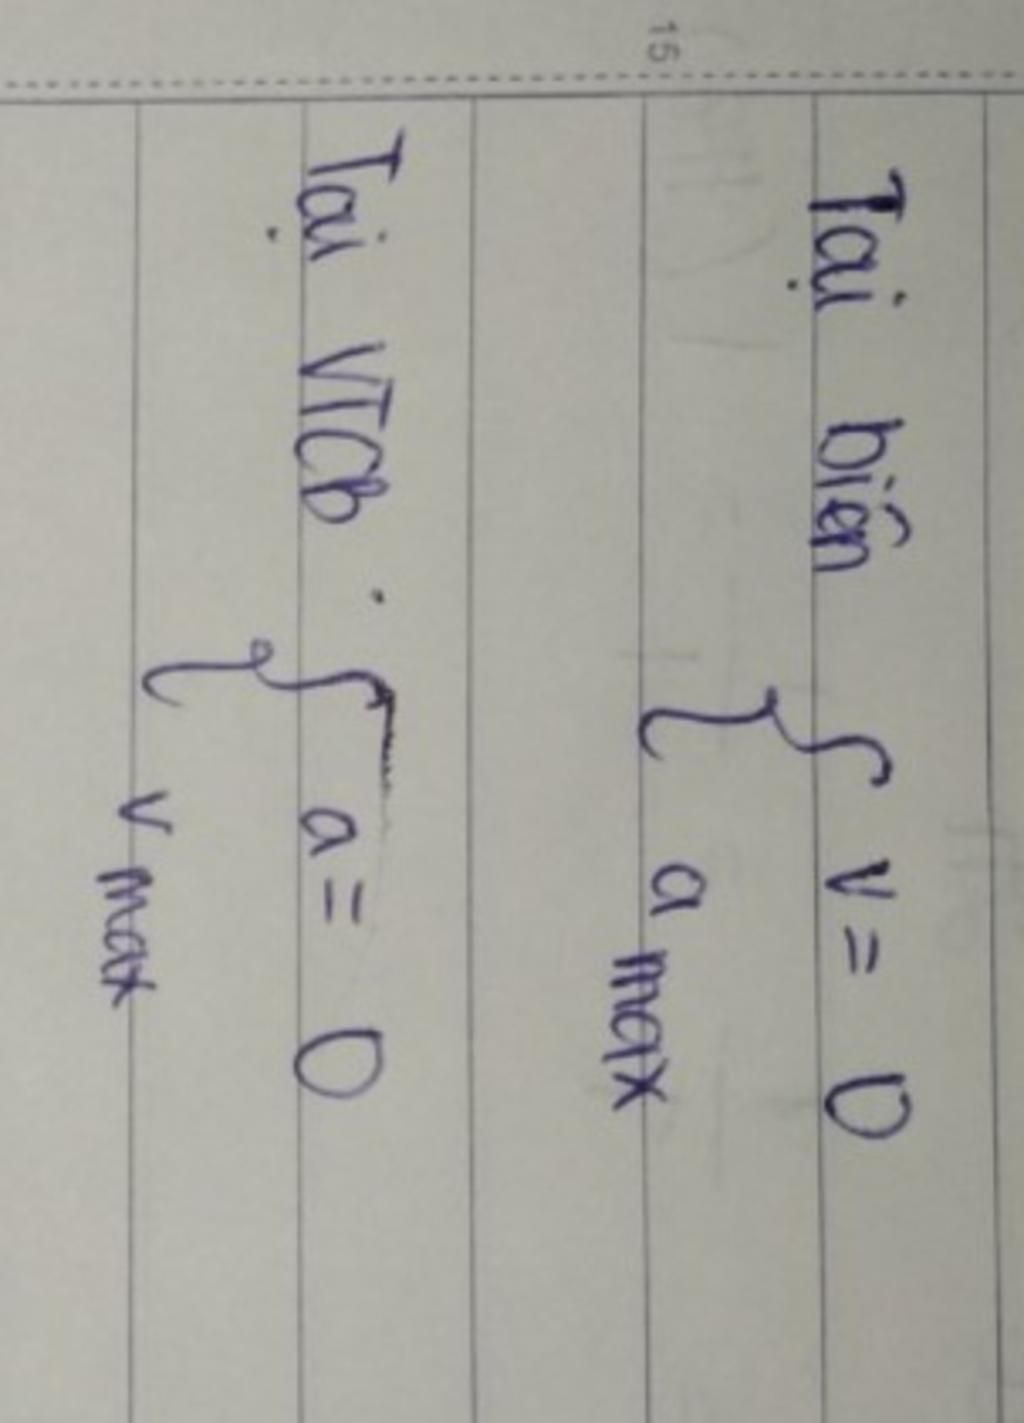 15
Tại biên { v = 0
a max
Tại VTCB . { a = 0
v max